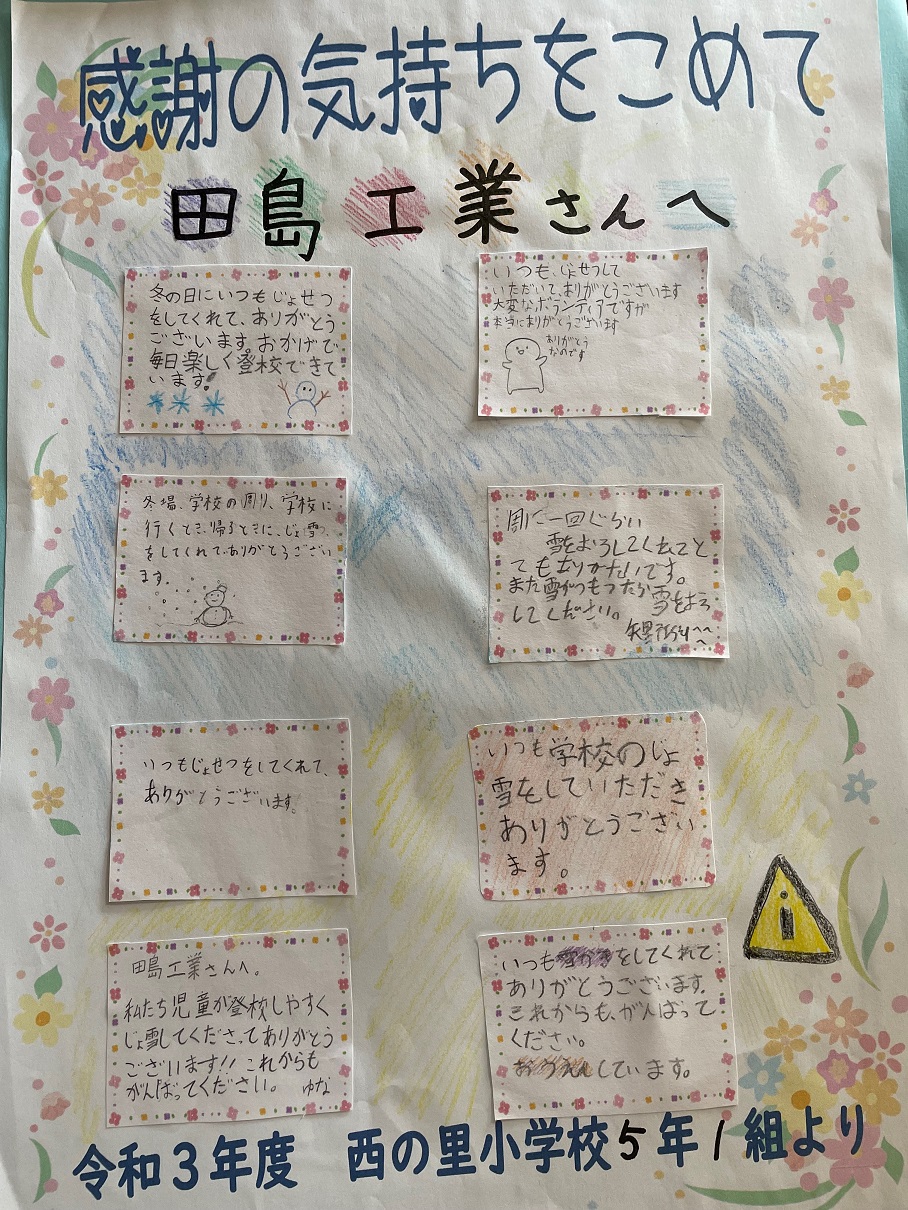 感謝の気持ちをこめて
田島工業さんへ
冬の日にいつもじょせつ
をしてくれて、ありがとう
ございます。おかげで
毎日楽しく登校できて
います。
いつも、じょせつして
いただいて、ありがとうございます
大変なボランティアですが
本当にありがとうございます
ありがとう
なのです
冬場、学校の周り、学校に
行くとき、帰るときに、じょ雪
をしてくれてありがとうござい
ます。
周に一回じらい
雪をおろしてくれてと
てもありがたいです。
また雪がつもったら雪をおろ
してください。
いつもじょせつをしてくれて、
ありがとうございます。
いつも学校のじょ
雪をしていただき
ありがとうござい
ます。
田島工業さんへ。
私たち児童が登校しやすく
じょ雪してくださってありがとう
ございます!! これからも
がんばってください。 ゆな
いつも雪かきをしてくれて
ありがとうございます。
これからも、がんばって
ください。
おうえんしています。
令和3年度 西の里小学校5年1組より